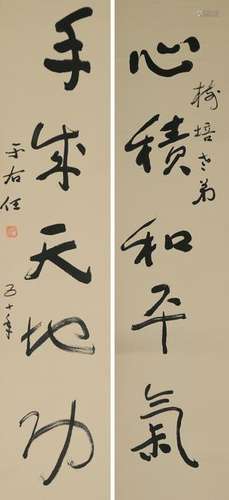 心積和平氣
樹培老弟
手成天地功
于右任
五十年